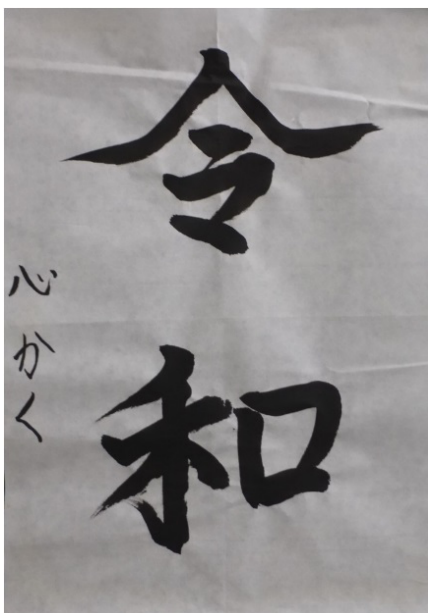 令和
心かく